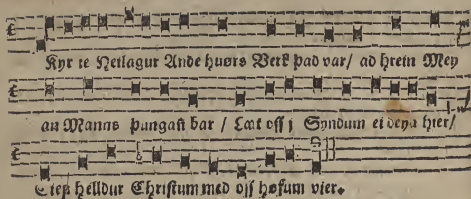 Kyr te Heilagur Ande huørs Verk það var/ að hrein Mey
an Manns þungast bar / Læt oss j Syndum ei deya hier/
E less helldur Christum med oss høfum vier.